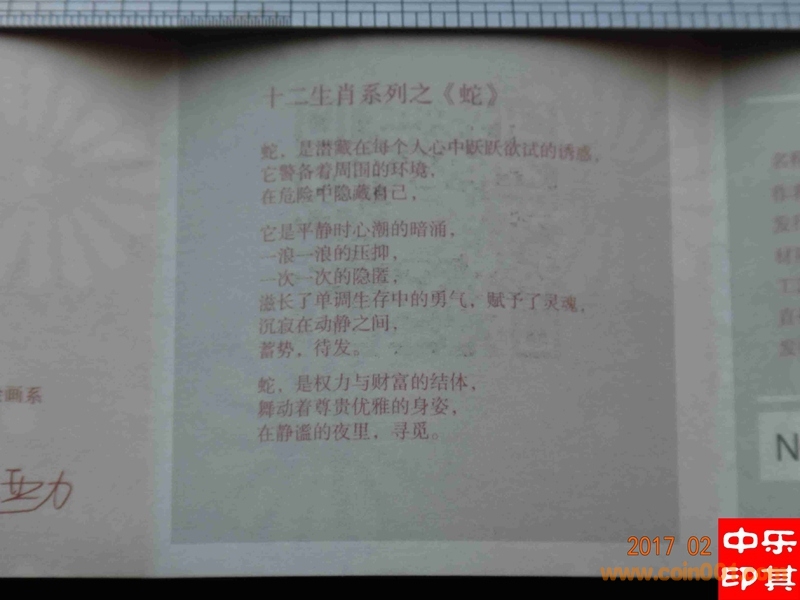 十二生肖系列之《蛇》
蛇，是潜藏在每个人心中跃跃欲试的诱惑，
它警备着周围的环境，
在危险中隐藏自己，
它是平静时心潮的暗涌，
一浪一浪的压抑，
一次一次的隐匿，
滋长了单调生存中的勇气，赋予了灵魂，
沉寂在动静之间，
蓄势，待发。
蛇，是权力与财富的结体，
舞动着尊贵优雅的身姿，
在静谧的夜里，寻觅。
画系
名称
作者
发行
材
工
直
发
N
2017 02
中乐
印其
www.coin001.com